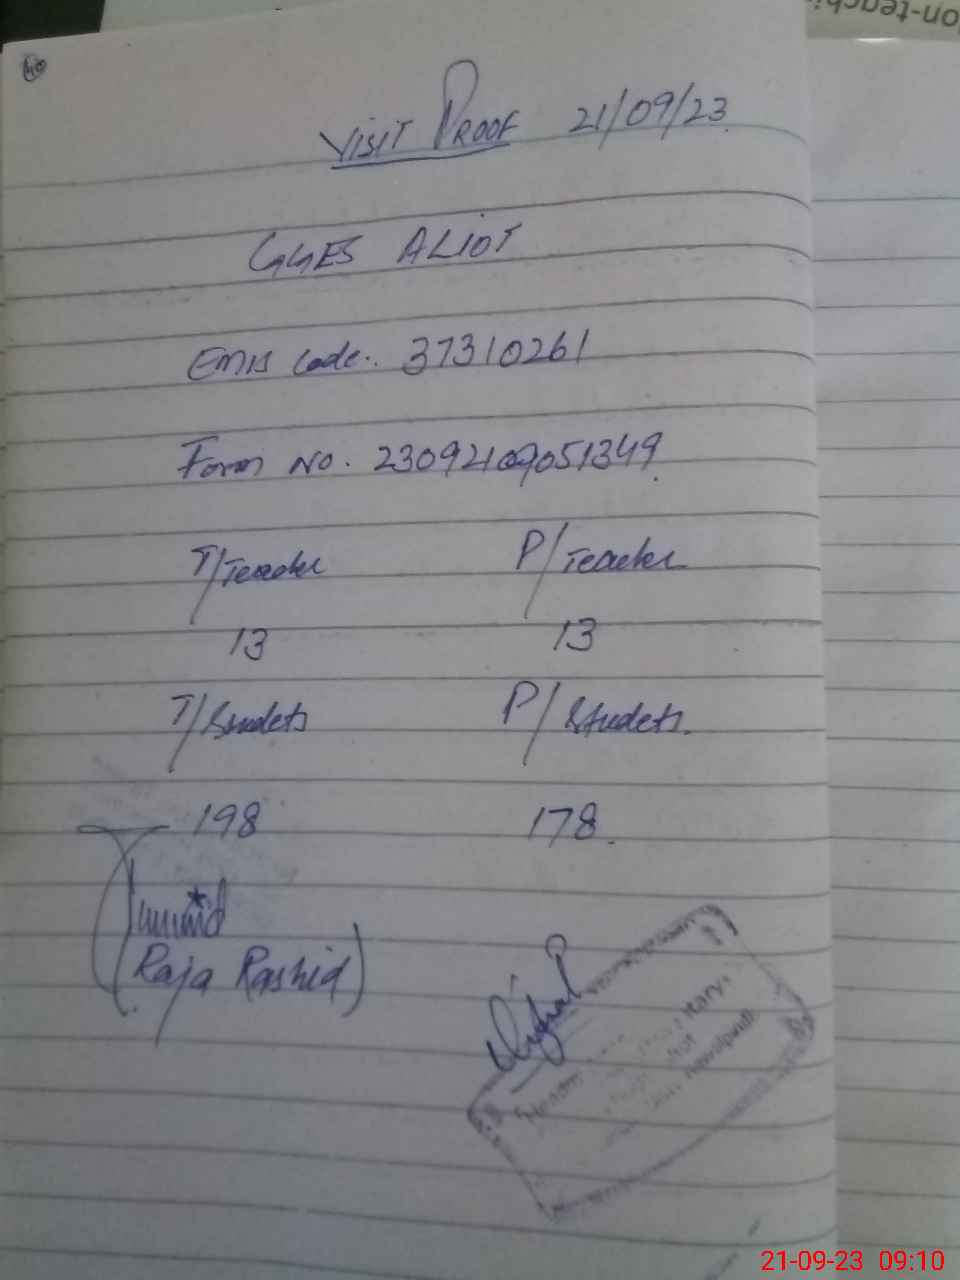 on-teachi
40
VISIT PROOF 21/09/23
GGES ALIOT
EMIS Code:. 37310261
Form No. 23092109051349
T/Teacher P/Teacher
13 13
T/Students P/Students.
198 178.
(Raja Rashid)
Headm
Rawalpindi
21-09-23 09:10